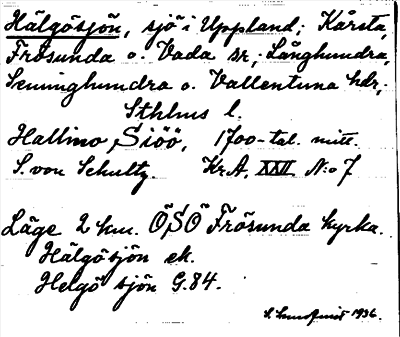 Hälgösjön, sjö i Uppland; Kårsta,
Frösunda o. Vada sr, Långhundra,
Seminghundra o. Vallentuna hdr,
Sthlms l.
Hallmo Siöö, 1700-tal. mitt.
S. von Schultz. Kr.A. XXII N:o 7
Läge 2 km. ÖSÖ Frösunda kyrka.
Hälgösjön ek.
Helgö sjön G.84.
S. 1936.